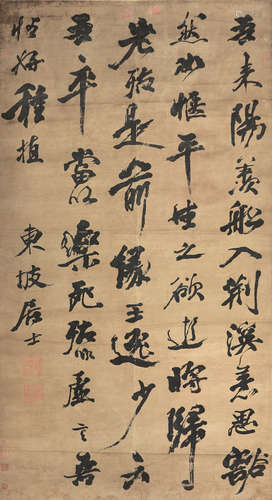 吾来陽羨船入荊溪意思豁
然如愜平生之欲逝將歸
老殆是前緣王逸少云
吾卒當以樂死殆非虛言吾
性好種植
東坡居士